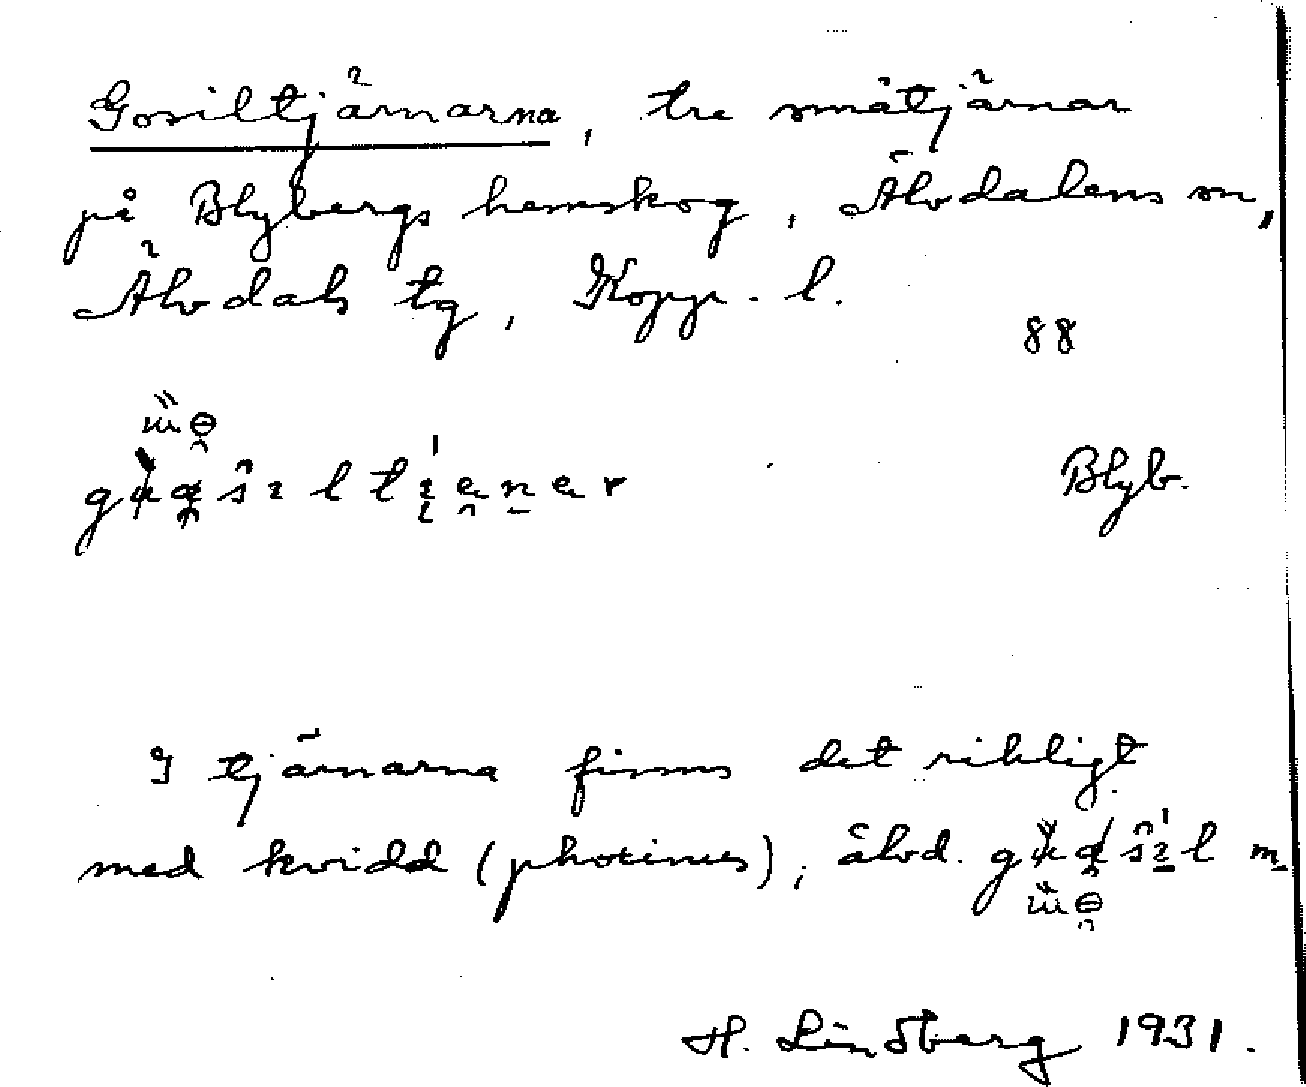 Gosiltjärnarna, tre småtjärnar
på Blybergs hemskog, Älvdalens sn,
Älvdals tg, Kopp. l.
88
Blyb.
I tjärnarna finns det rikligt
med kvidd (photinus), älvd.
H. Lindberg 1931.